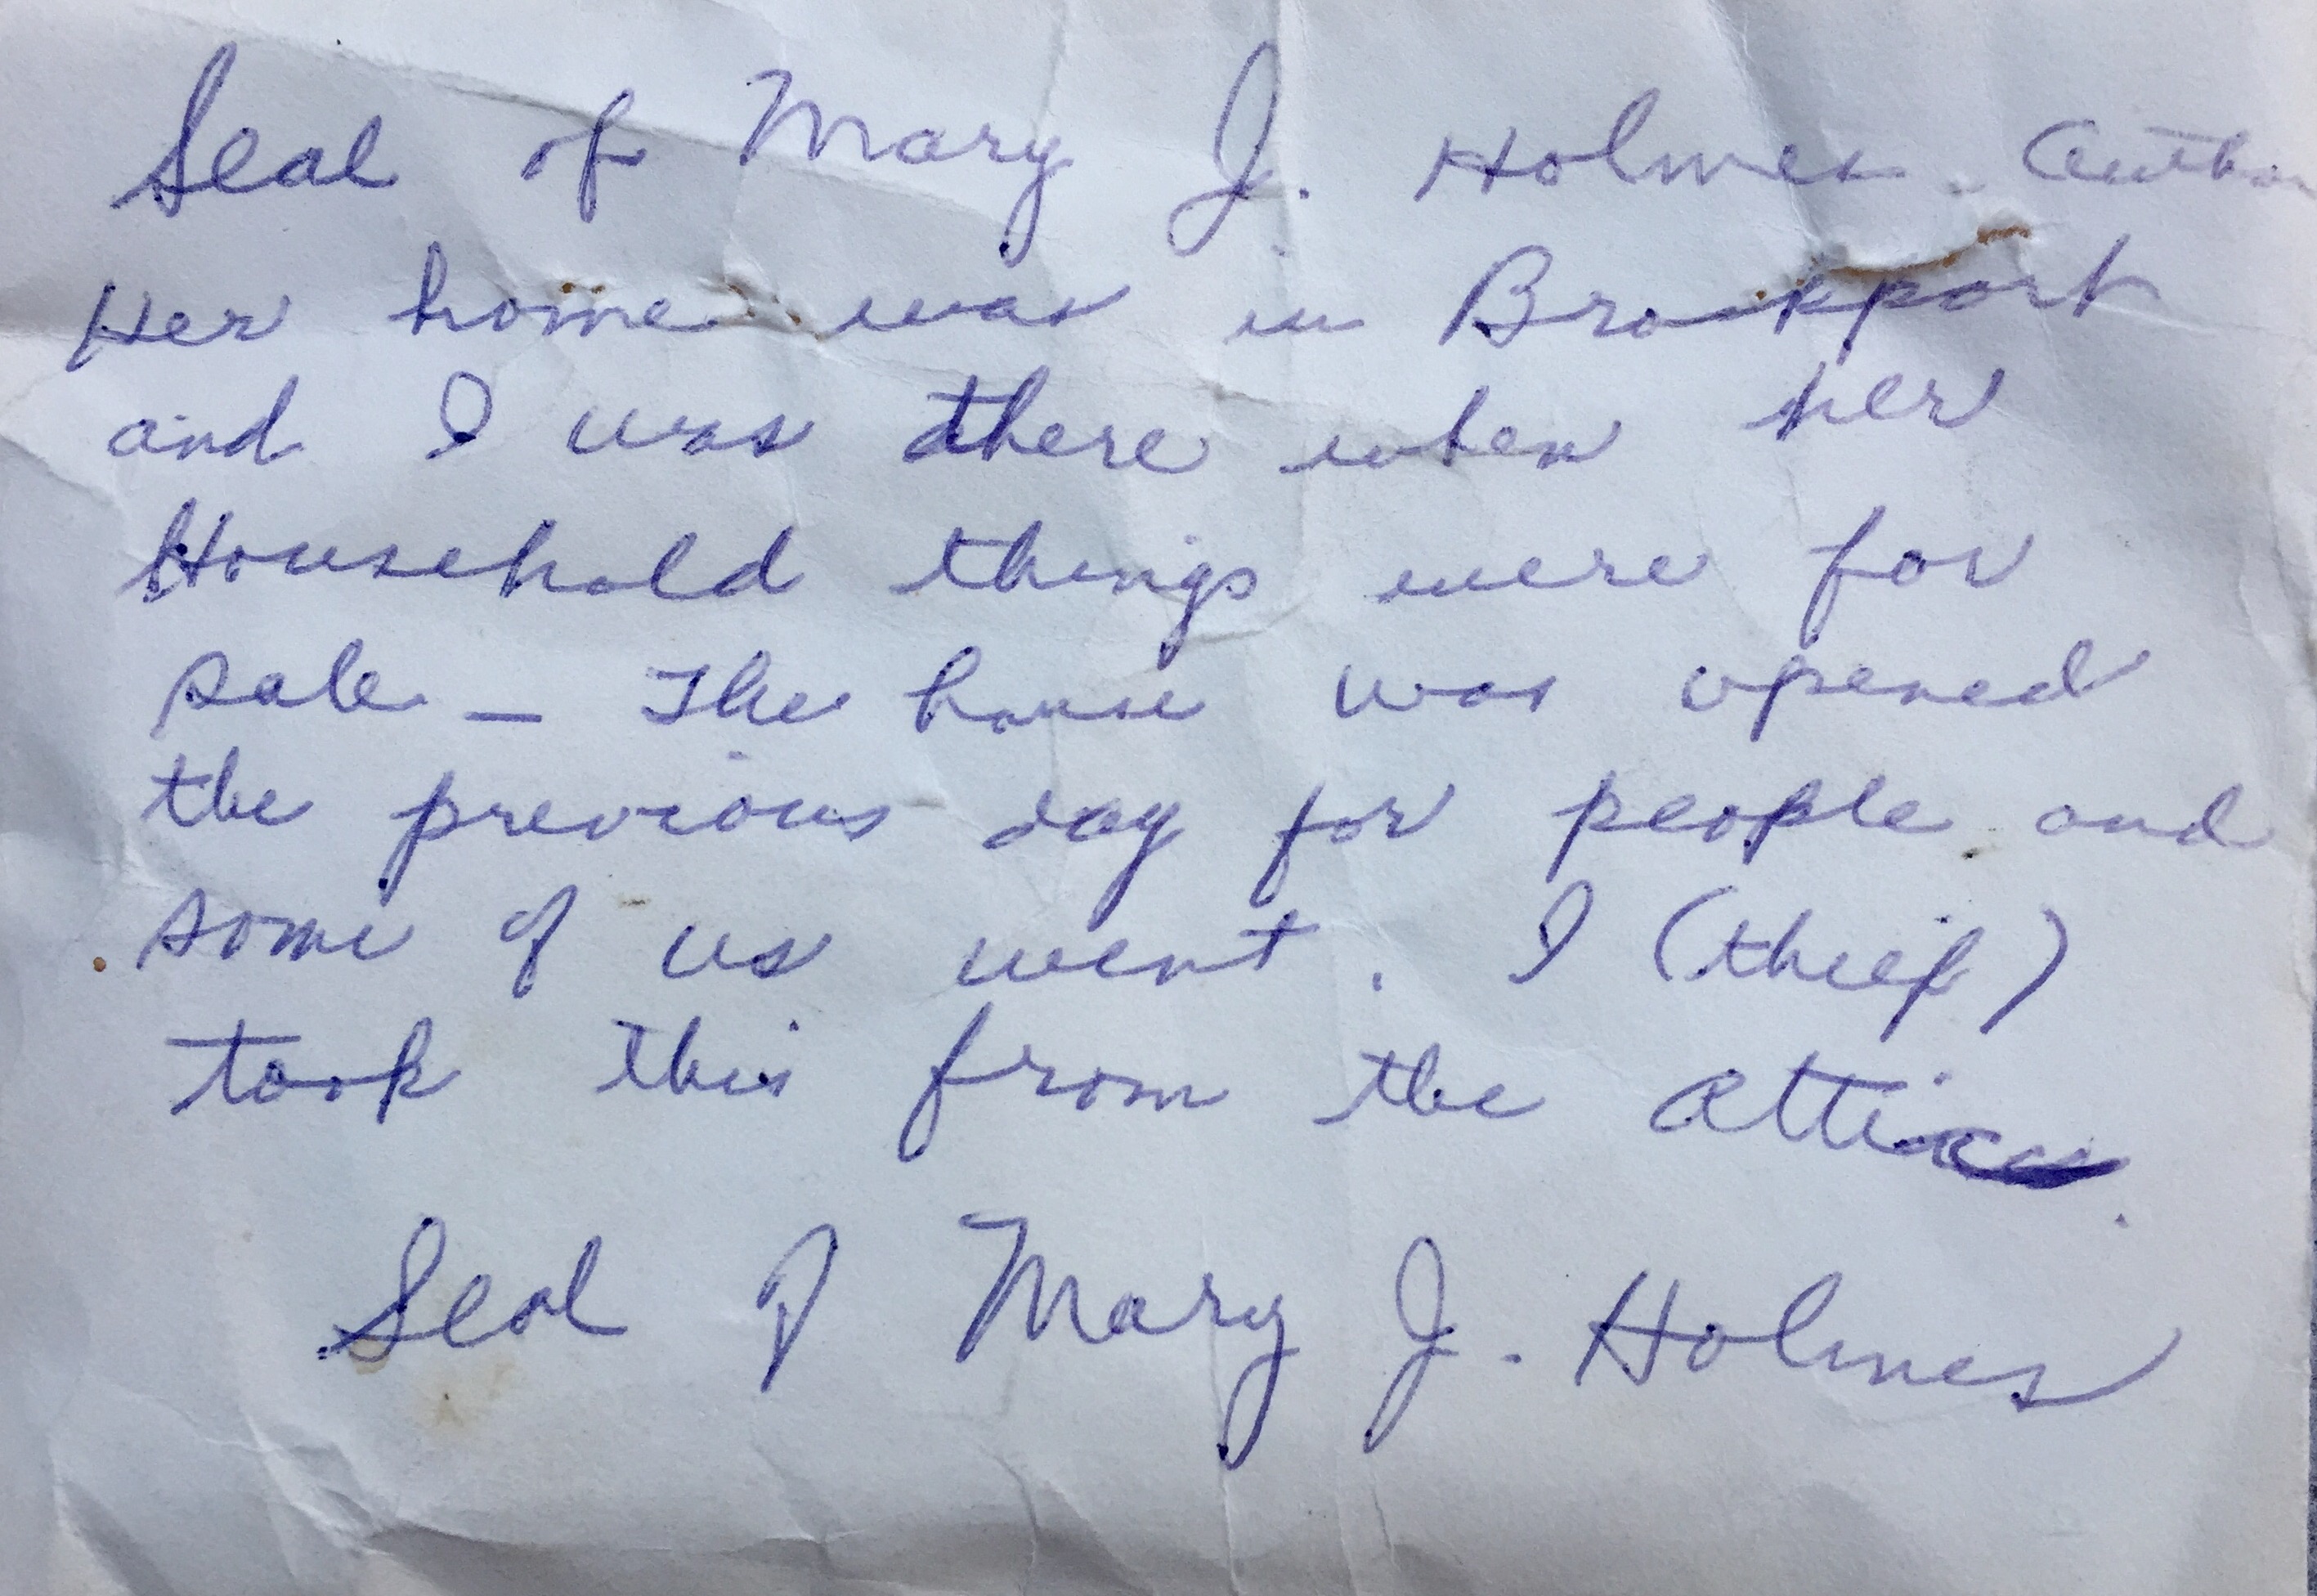 Seal of Mary J. Holmes. Author
Her home was in Brockport
and I was there when her
Household things were for
sale – The house was opened
the previous day for people and
some of us went. I (thief)
took this from the attic
Seal of Mary J. Holmes